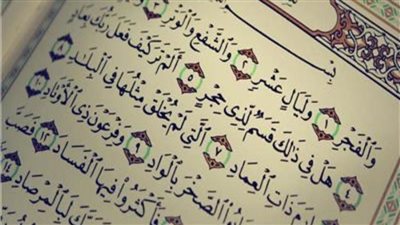 وَالْفَجْرِ ١ وَلَيَالٍ عَشْرٍ ٢ وَالشَّفْعِ وَالْوَتْرِ ٣
٤ هَلْ فِي ذَٰلِكَ قَسَمٌ لِّذِي حِجْرٍ ٥ أَلَمْ تَرَ كَيْفَ فَعَلَ رَبُّكَ بِعَادٍ
ذَاتِ الْعِمَادِ ٧ الَّتِي لَمْ يُخْلَقْ مِثْلُهَا فِي الْبِلَادِ ٨
الصَّخْرَ بِالْوَادِ ٩ وَفِرْعَوْنَ ذِي الْأَوْتَادِ ١٠
فَأَكْثَرُوا فِيهَا الْفَسَادَ ١٢ فَصَبَّ
رَبَّكَ لَبِالْمِرْصَادِ ١٤